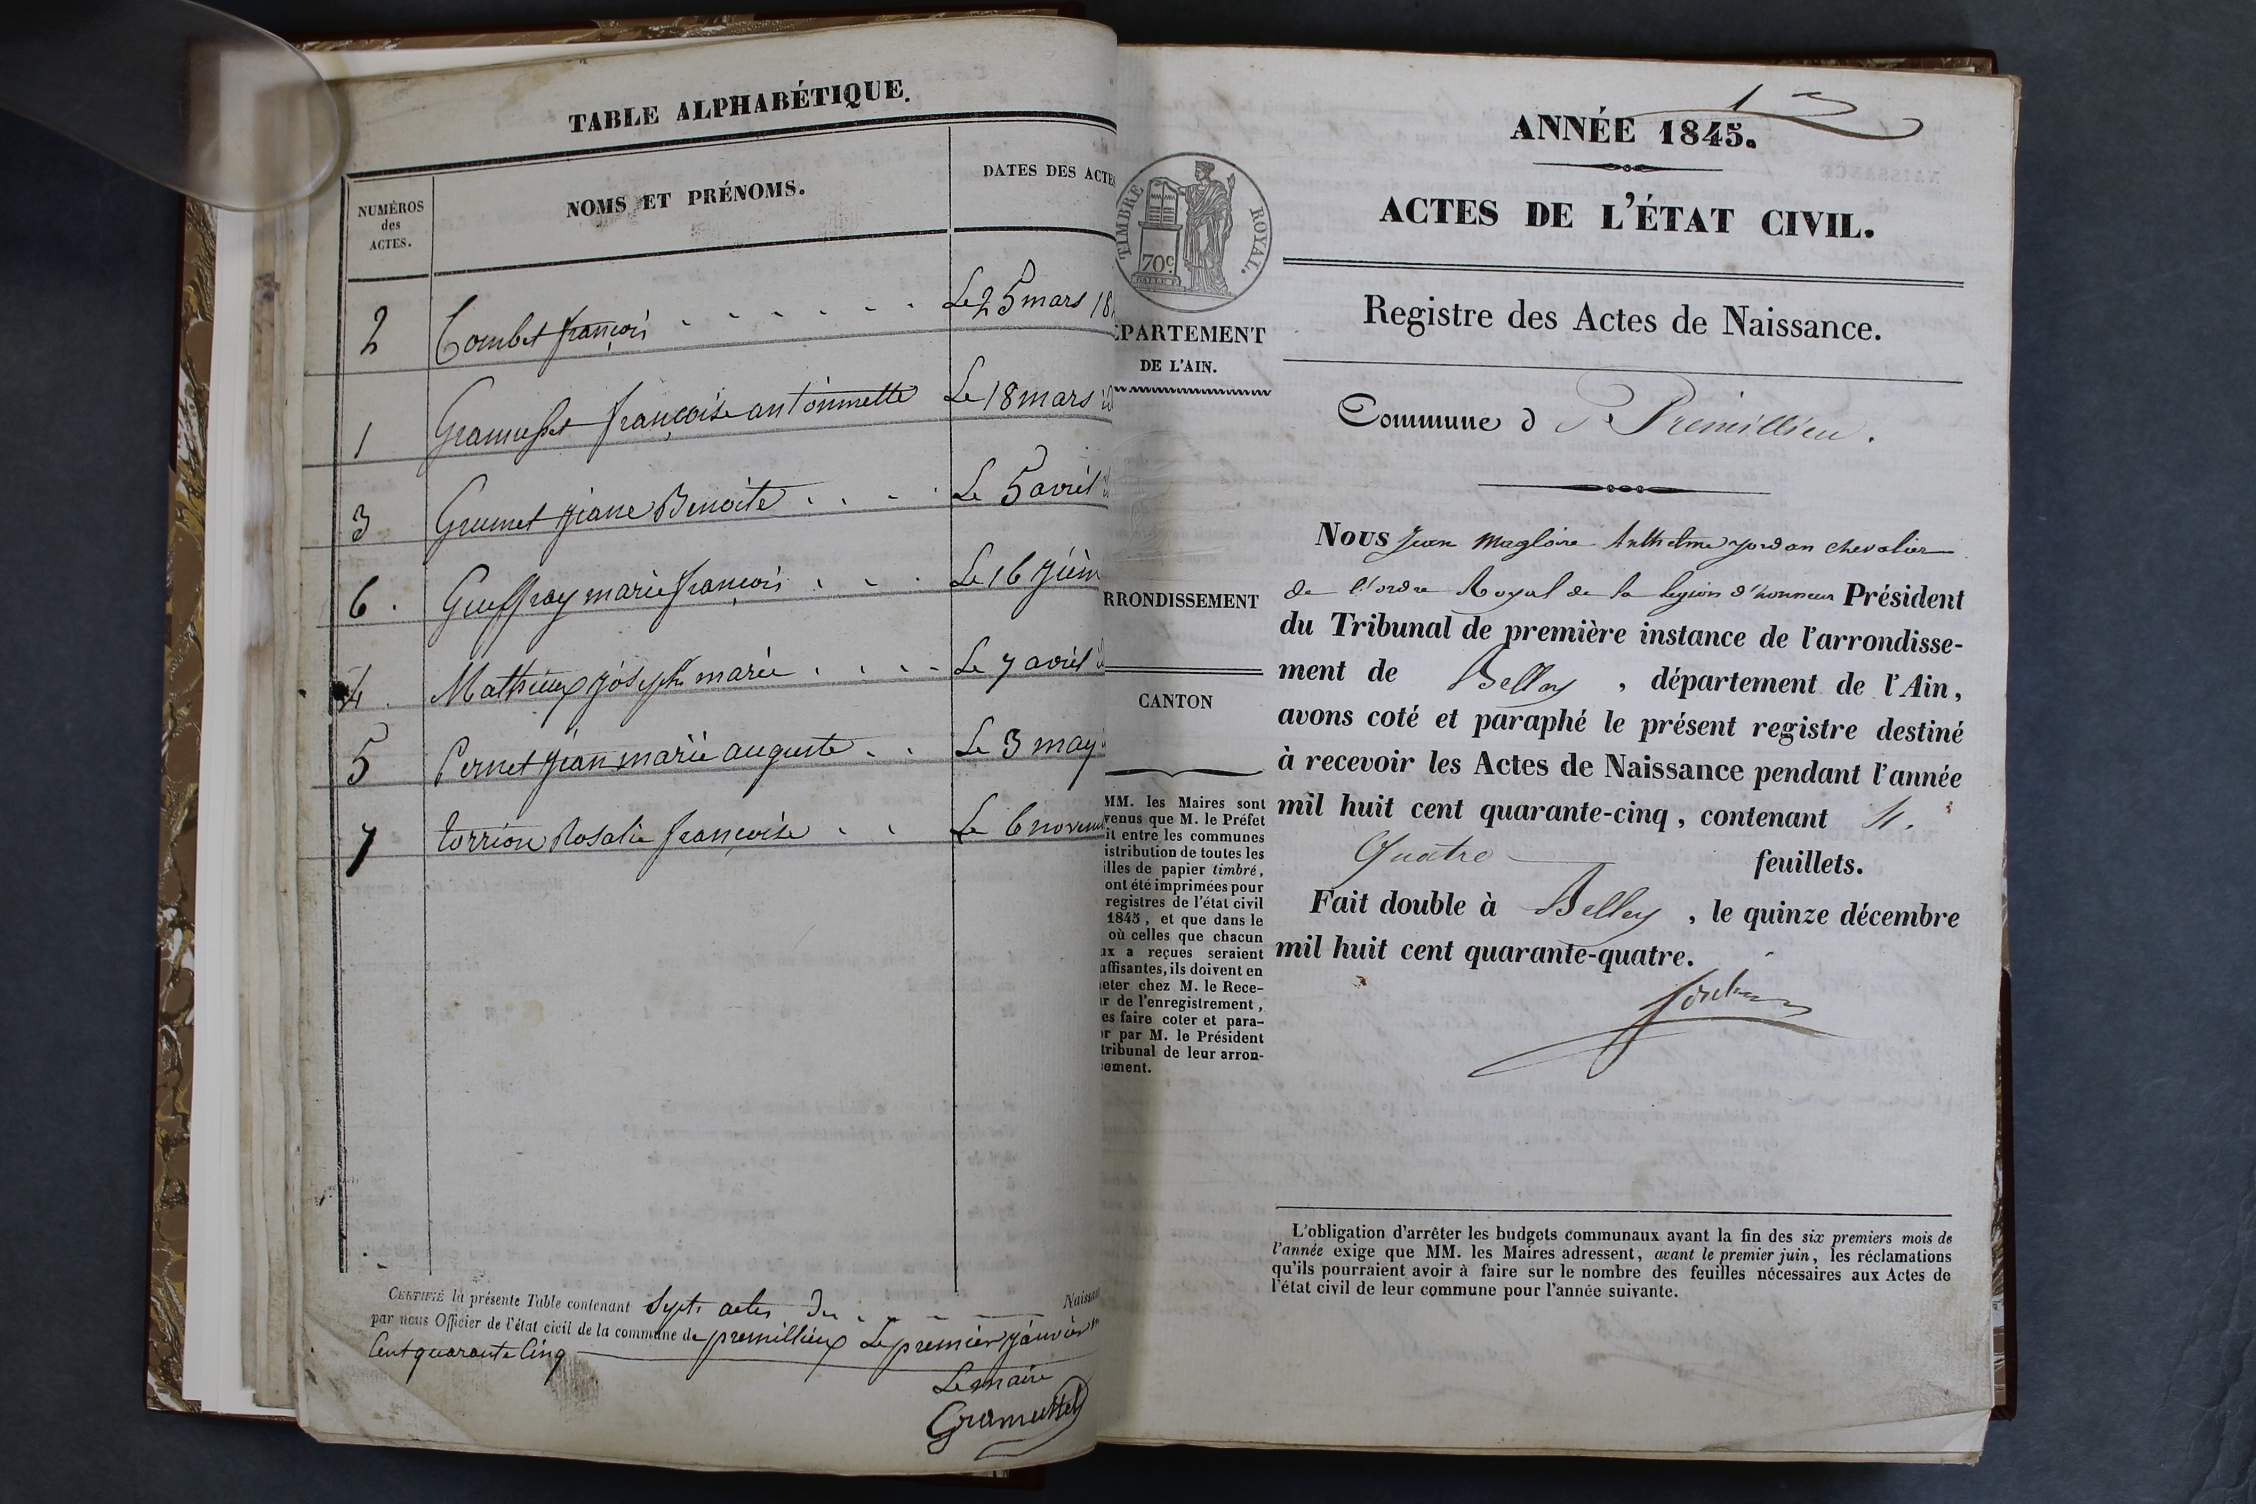 TABLE ALPHABÉTIQUE.
NUMÉROS
des
ACTES.
NOMS ET PRÉNOMS.
DATES DES ACTES
2 Combet françois Le 25 mars 18
1 Gramusset françoise antoinnette Le 18 mars id
3 Grumet jiane Benoite Le 5 avril
6 . Gueffray marie françois Le 16 juin
4 . Mathieux joseph marie Le 7 avril
5 Pernet jean marie auguste Le 3 may
7 torrion Rosalie françoise Le 6 novem
CERTIFIÉ la présente Table contenant Sept actes De Naissan
par nous Officier de l'état civil de la commune de premillieux Le premier janvier m
Cent quarante Cinq
Le maire
Gramusset
1
ANNÉE 1845.
ACTES DE L'ÉTAT CIVIL.
TIMBRE ROYAL.
70c.
Registre des Actes de Naissance.
ÉPARTEMENT
DE L'AIN.
Commune de Premillieu.
Nous Jean Magloire Anthelme Jordan chevalier
de l'ordre Royal de la légion d'honneur Président
du Tribunal de première instance de l'arrondisse-
ment de Belley, département de l'Ain,
avons coté et paraphé le présent registre destiné
à recevoir les Actes de Naissance pendant l'année
mil huit cent quarante-cinq, contenant 4.
Quatre feuillets.
Fait double à Belley, le quinze décembre
mil huit cent quarante-quatre.
Jordan
RRONDISSEMENT
CANTON
MM. les Maires sont
venus que M. le Préfet
it entre les communes
istribution de toutes les
illes de papier timbré,
ont été imprimées pour
registres de l'état civil
1845, et que dans le
où celles que chacun
ux a reçues seraient
uffisantes, ils doivent en
eter chez M. le Rece-
r de l'enregistrement,
es faire coter et para-
er par M. le Président
tribunal de leur arron-
sement.
L'obligation d'arrêter les budgets communaux avant la fin des six premiers mois de
l'année exige que MM. les Maires adressent, avant le premier juin, les réclamations
qu'ils pourraient avoir à faire sur le nombre des feuilles nécessaires aux Actes de
l'état civil de leur commune pour l'année suivante.